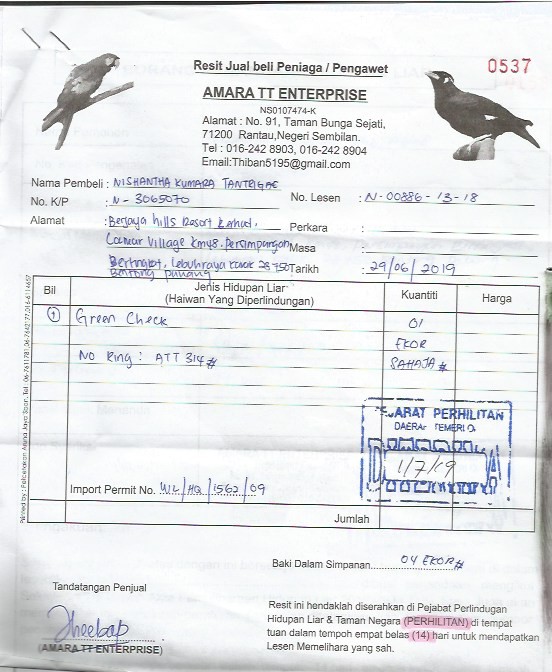 Resit Jual beli Peniaga / Pengawet
0537
AMARA TT ENTERPRISE
NS0107474-K
Alamat : No. 91, Taman Bunga Sejati,
71200 Rantau,Negeri Sembilan.
Tel : 016-242 8903, 016-242 8904
Email:Thiban5195@gmail.com
Nama Pembeli : NISHANTHA KUMARA TANTRIGAE
No. K/P : N - 3065070
No. Lesen : N-00886-13-18
Alamat : Berjaya hills Resort
Perkara :
Village Km48. Persimpangan
Masa :
Bertingkat, Lebuhraya Karak 28750
Bentong Pahang
Tarikh : 29/06/2019
Bil
Jenis Hidupan Liar
(Haiwan Yang Diperlindungan)
Kuantiti
Harga
① Green Check
01
EKOR
No Ring : ATT 314#
SAHAJA#
PEJABAT PERHILITAN
DAERAH TEMERLOH
1/7/19
Import Permit No. WL/HQ/1562/09
Jumlah
Baki Dalam Simpanan 04 EKOR#
Tandatangan Penjual
(AMARA TT ENTERPRISE)
Resit ini hendaklah diserahkan di Pejabat Perlindungan
Hidupan Liar & Taman Negara (PERHILITAN) di tempat
tuan dalam tempoh empat belas (14) hari untuk mendapatkan
Lesen Memelihara yang sah.